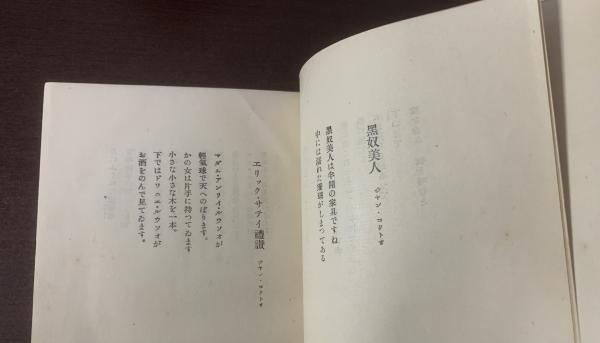 黑奴美人
ジヤン・コクトオ
黑奴美人は半開の家具ですね
中には濡れた珊瑚がしまつてある
エリック・サティ禮讃
ジヤン・コクトオ
マダム・アンリイ・ルウソオが
輕氣球で天へのぼります。
かの女は片手に持つてゐます
小さな小さな木を一本。
下ではドリニエ・ルウソオが
お酒をのんで見てゐます。